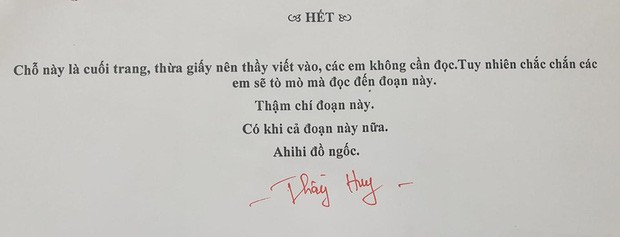 HẾT
Chỗ này là cuối trang, thừa giấy nên thầy viết vào, các em không cần đọc.Tuy nhiên chắc chắn các
em sẽ tò mò mà đọc đến đoạn này.
Thậm chí đoạn này.
Có khi cả đoạn này nữa.
Ahihi đồ ngốc.
- Thầy Huy -